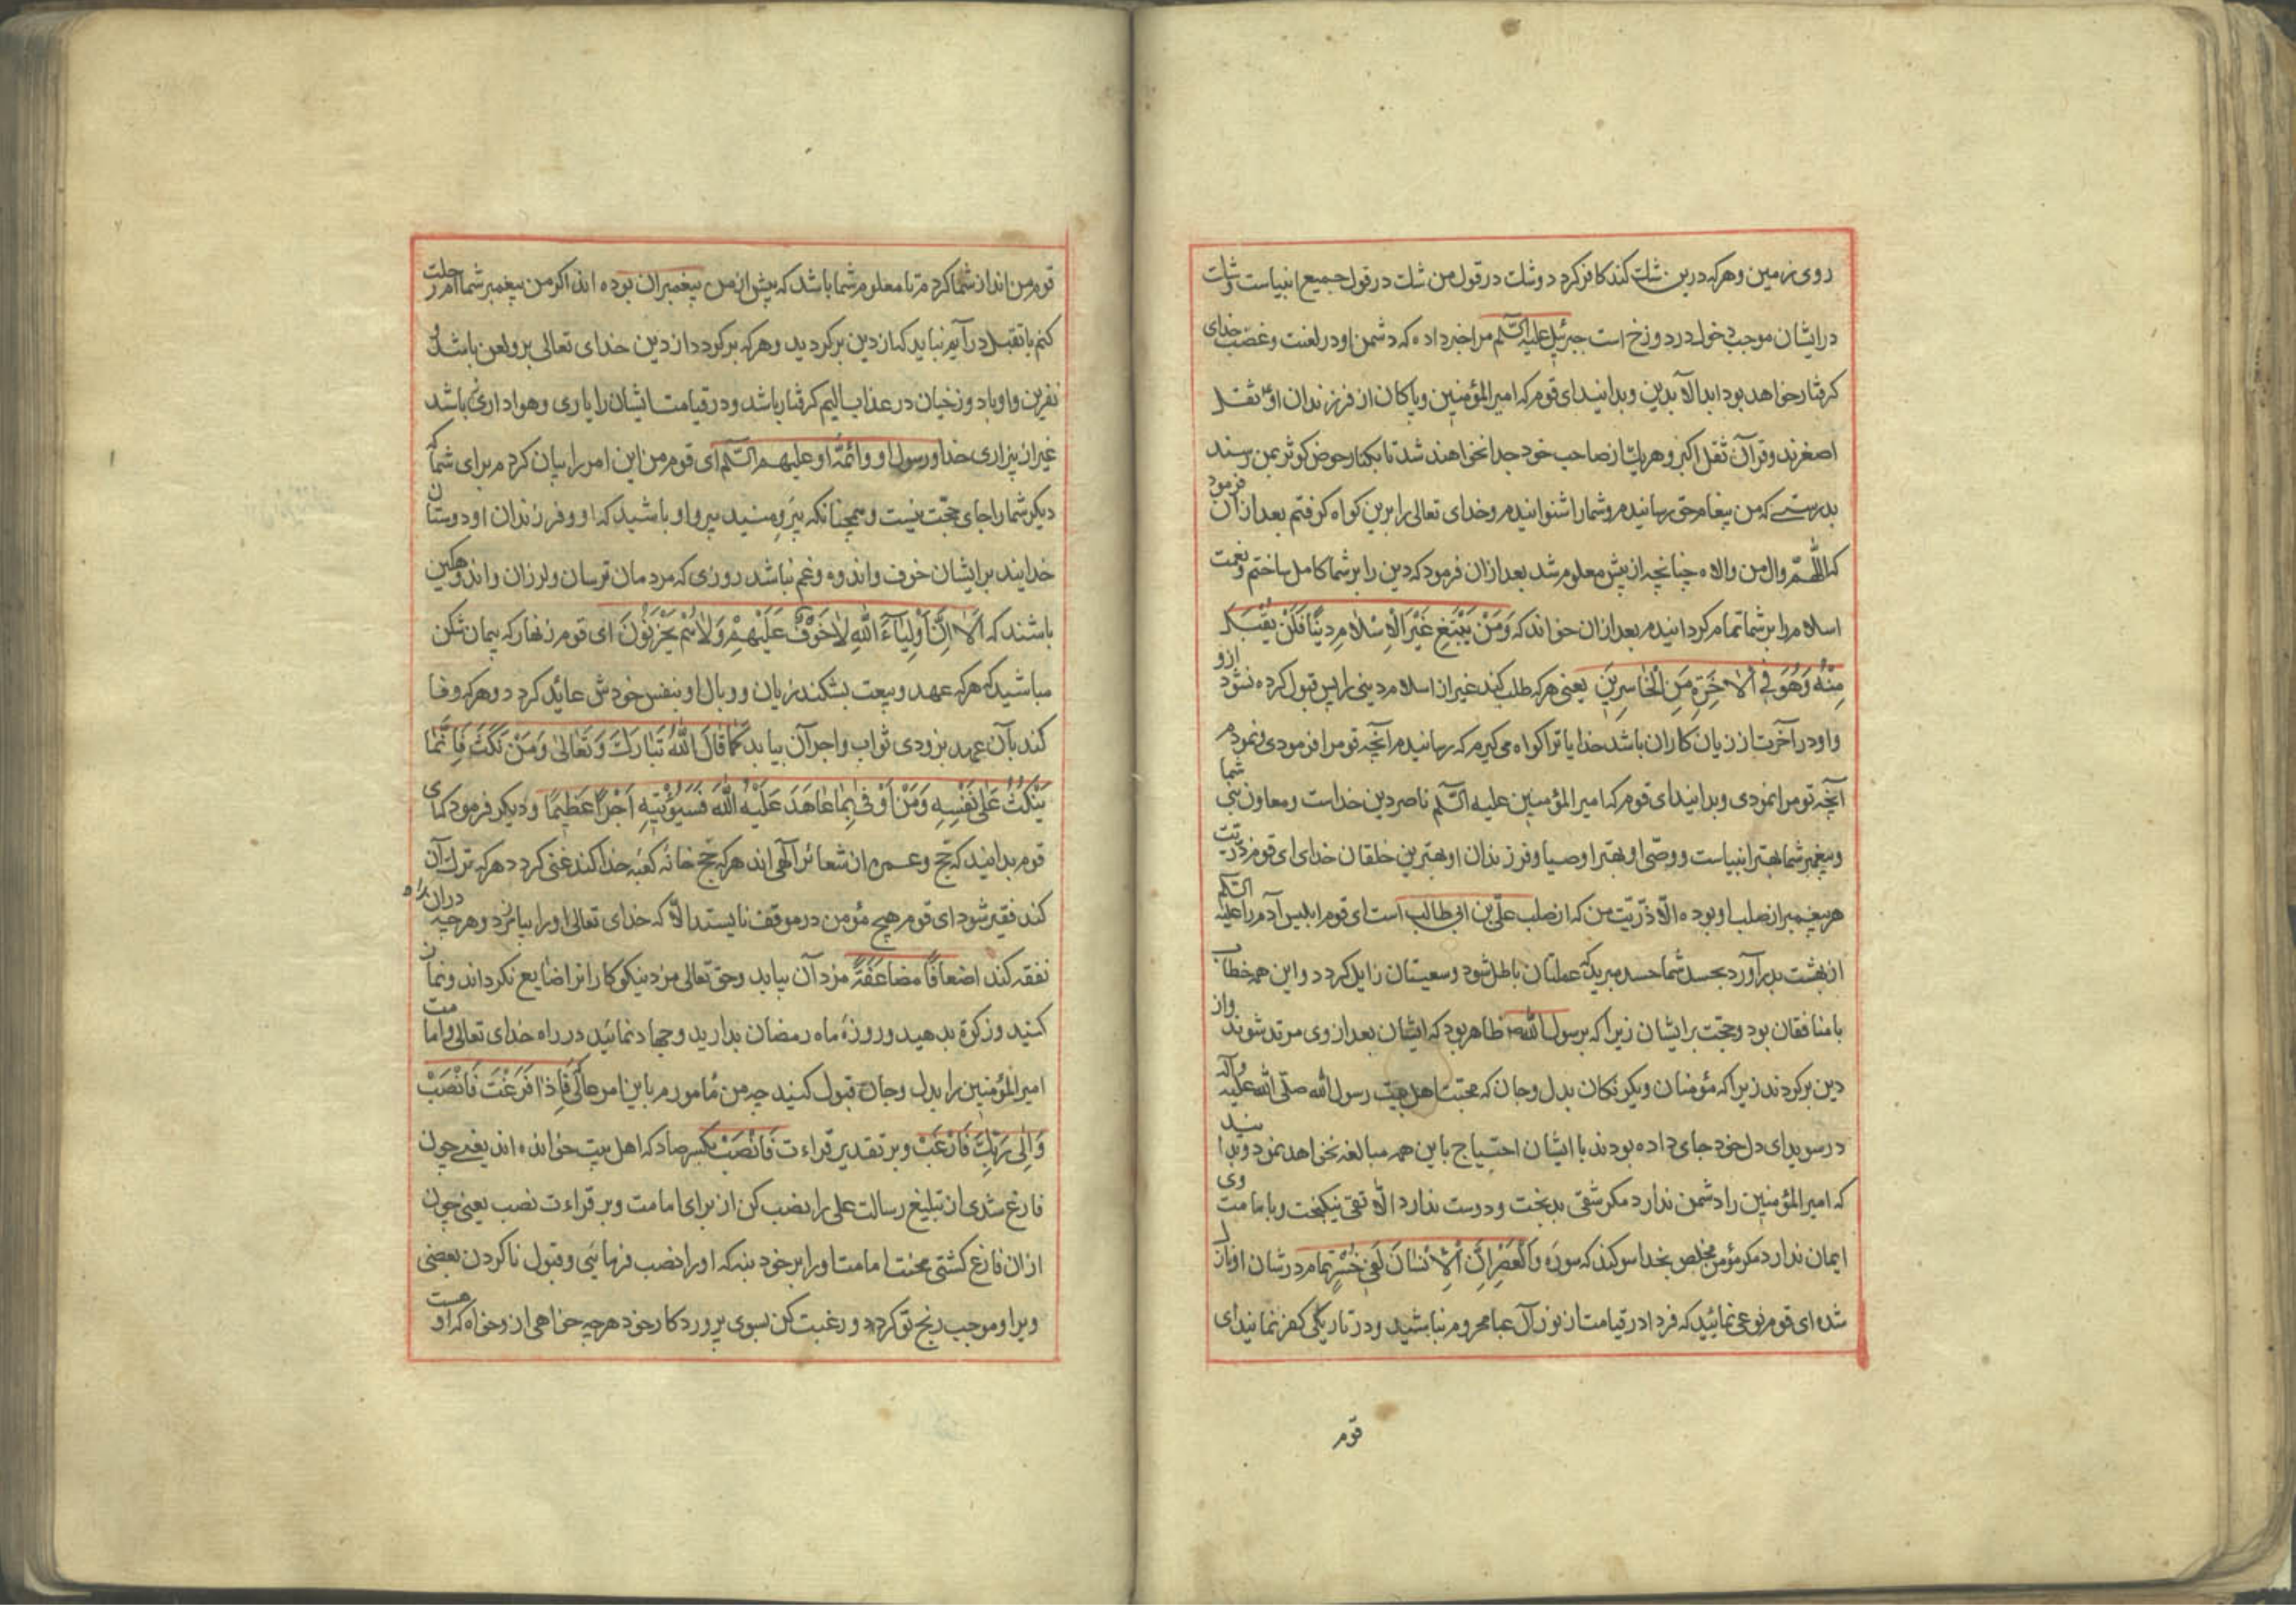 روی زمین و هرکه درین شک کند کافر کردد و شک در قول من شک در قول جمیع انبیاست و شک
در ایشان موجب خول در دوزخ است جبرئیل علیه السّلم مرا خبر داده که دشمن او در لعنت و غضب خدای
کرفتار خواهد بود ابد الآبدین و بدانید ای قوم که امیرالمؤمنین و پاکان از فرزندان او ثقل
اصغرند و قرآن ثقل اکبر و هریک از صاحب خود جدا نخواهند شد تا بکنار حوض کوثر بمن رسند
بدرستی که من پیغام حق رسانیدم و شما را شنوانیدم و خدای تعالی را برین کواه کرفتم بعد از آن فرمود
که اللّهمّ وال من والاه چنانچه از پیش معلوم شد بعد ازان فرمود که دین را بر شما کامل ساختم و نعمت
اسلام را بر شما تمام کردانیدم بعد ازان خواند که وَمَنْ یَبْتَغِ غَیْرَ الْاِسْلامِ دِینًا فَلَنْ یُقْبَلَ
مِنْهُ وَهُوَ فِی الْاٰخِرَةِ مِنَ الْخاسِرِینَ یعنی هرکه طلب کند غیر از اسلام دینی را پس قبول کرده نشود ازو
و او در آخرت از زیان کاران باشد خدایا ترا کواه می کیرم که رسانیدم آنچه تو مرا فرمودی و نمودم
آنچه تو مرا نمودی و بدانید ای قوم که امیر المؤمنین علیه السّلم ناصر دین خداست و معاون نبی شما
و پیغمبر شما بهتر انبیاست و وصّی او بهتر اوصیا و فرزندان او بهترین خلقان خدای ای قوم ذرّیت
هر پیغمبر از صلب او بوده الّا ذرّیت من که از صلب علیّ بن ابی طالب است ای قوم ابلیس آدم را علیه السّلم
از بهشت بدر آورد بحسد شما حسد مبرید که عملتان باطل شود و سعیتان زایل کردد و این همه خطاب
با منافقان بود و حجّت بر ایشان زیرا که بر رسول اللّه ص ظاهر بود که ایشان بعد از وی مرتد شوند و از
دین برکردند زیرا که مؤمنان و یکرنکان بدل و جان که محبّت اهل بیت رسول اللّه صلّی اللّه علیه و آله
در سویدای دل خود جای داده بودند با ایشان احتیاج باین همه مبالغه نخواهد نمود و بدانید
که امیر المؤمنین را دشمن ندارد مکر شقی بدبخت و دوست ندارد الّا تقی نیکبخت و بامامت وی
ایمان ندارد مکر مؤمن مخلص بخدا سوکند که سوره وَالْعَصْرِ اِنَّ الْاِنْسٰانَ لَفِی خُسْرٍ تمام در شان او نازل
شده ای قوم نوعی نمائید که فردا در قیامت از نور آل عبا محروم نباشید و در تاریکی کفر نمانید ای
قوم
قوم من انداز شما کردم تا معلوم شما باشد که پیش از من پیغمبران بوده اند اکر من پیغمبر شما رحلت
کنم یا تقبل در آیم نباید که از دین برکردید و هرکه برکردد از دین خدای تعالی برو لعن باشد و
نفرین و او با دوزخیان در عذاب الیم کرفتار باشد و در قیامت ایشان را یاری و هواداری نباشد
غیر از بیزاری خدا و رسول او و ائمّه او علیهم السّلم ای قوم من این امر را بیان کردم برای شما که
دیکر شما را جای حجّت نیست و همچنانکه پیرو منید پیرو او باشید که او و فرزندان او دوستان
خدایند بر ایشان خوف و اندوه و غم نباشد روزی که مردمان ترسان و لرزان و اندوهکین
باشند که اَلٰا اِنَّ اَوْلِیٰاءَ اللّٰهِ لٰا خَوْفٌ عَلَیْهِمْ وَلٰا هُمْ یَحْزَنُونَ ای قوم زنهار که پیمان شکن
مباشید که هرکه عهد و بیعت بشکند زیان و وبال او بنفس خودش عائد کردد و هرکه وفا
کند بآن عهد بزودی ثواب و اجر آن بیابد کَمٰا قٰالَ اللّٰهُ تَبٰارَكَ وَتَعٰالیٰ وَمَنْ نَکَثَ فَاِنَّمٰا
یَنْکُثُ عَلیٰ نَفْسِهِ وَمَنْ اَوْفیٰ بِمٰا عٰاهَدَ عَلَیْهُ اللّٰهَ فَسَیُؤْتِیهِ اَجْرًا عَظِیمًا و دیکر فرمود که ای
قوم بدانید که حج و عمره از شعائر آلهی اند هرکه حج خانه کعبه خدا کند غنی کردد هرکه ترك آن
کند فقیر شود ای قوم هیچ مؤمن در موقف نایستد الّا که خدای تعالی او را بیامرزد و هرچه دران راه
نفقه کند اضعافًا مضاعَفَةً مزد آن بیابد و حقّ تعالی مزد نیکوکارانرا ضایع نکرداند و نماز
کنید و زکوة بدهید و روزهٔ ماه رمضان بدارید و جهاد نمائید در راه خدای تعالی و امامت
امیر المؤمنین را بدل و جان قبول کنید چه من مأمورم باین امر عالی فَاِذٰا فَرَغْتَ فَانْصَبْ
وَاِلیٰ رَبِّكَ فَارْغَبْ و بر تقدیر قراءت فَانْصَبْ بکسر صاد که اهل بیت خوانده اند یعنی چون
فارغ شدی از تبلیغ رسالت علی را نصب کن از برای امامت و بر قراءت نصب یعنی چون
ازان فارغ کشتی محنت امامت او را بر خود بنه که او را نصب فرمایی و قبول ناکردن بعضی
ویرا و موجب رنج تو کردد و رغبت کن بسوی پروردکار خود هرچه خواهی ازو خواه که او هست